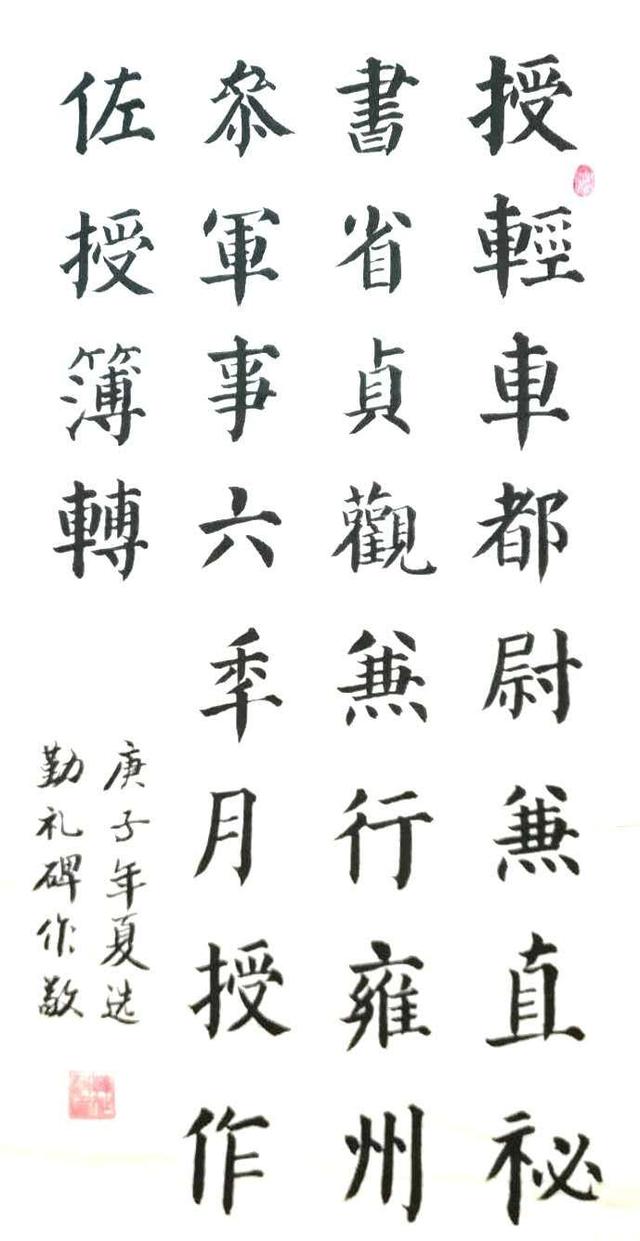 授輕車都尉兼直祕
書省貞觀兼行雍州
參軍事六季月授作
佐授簿轉
庚子年夏选
勤礼碑作敬